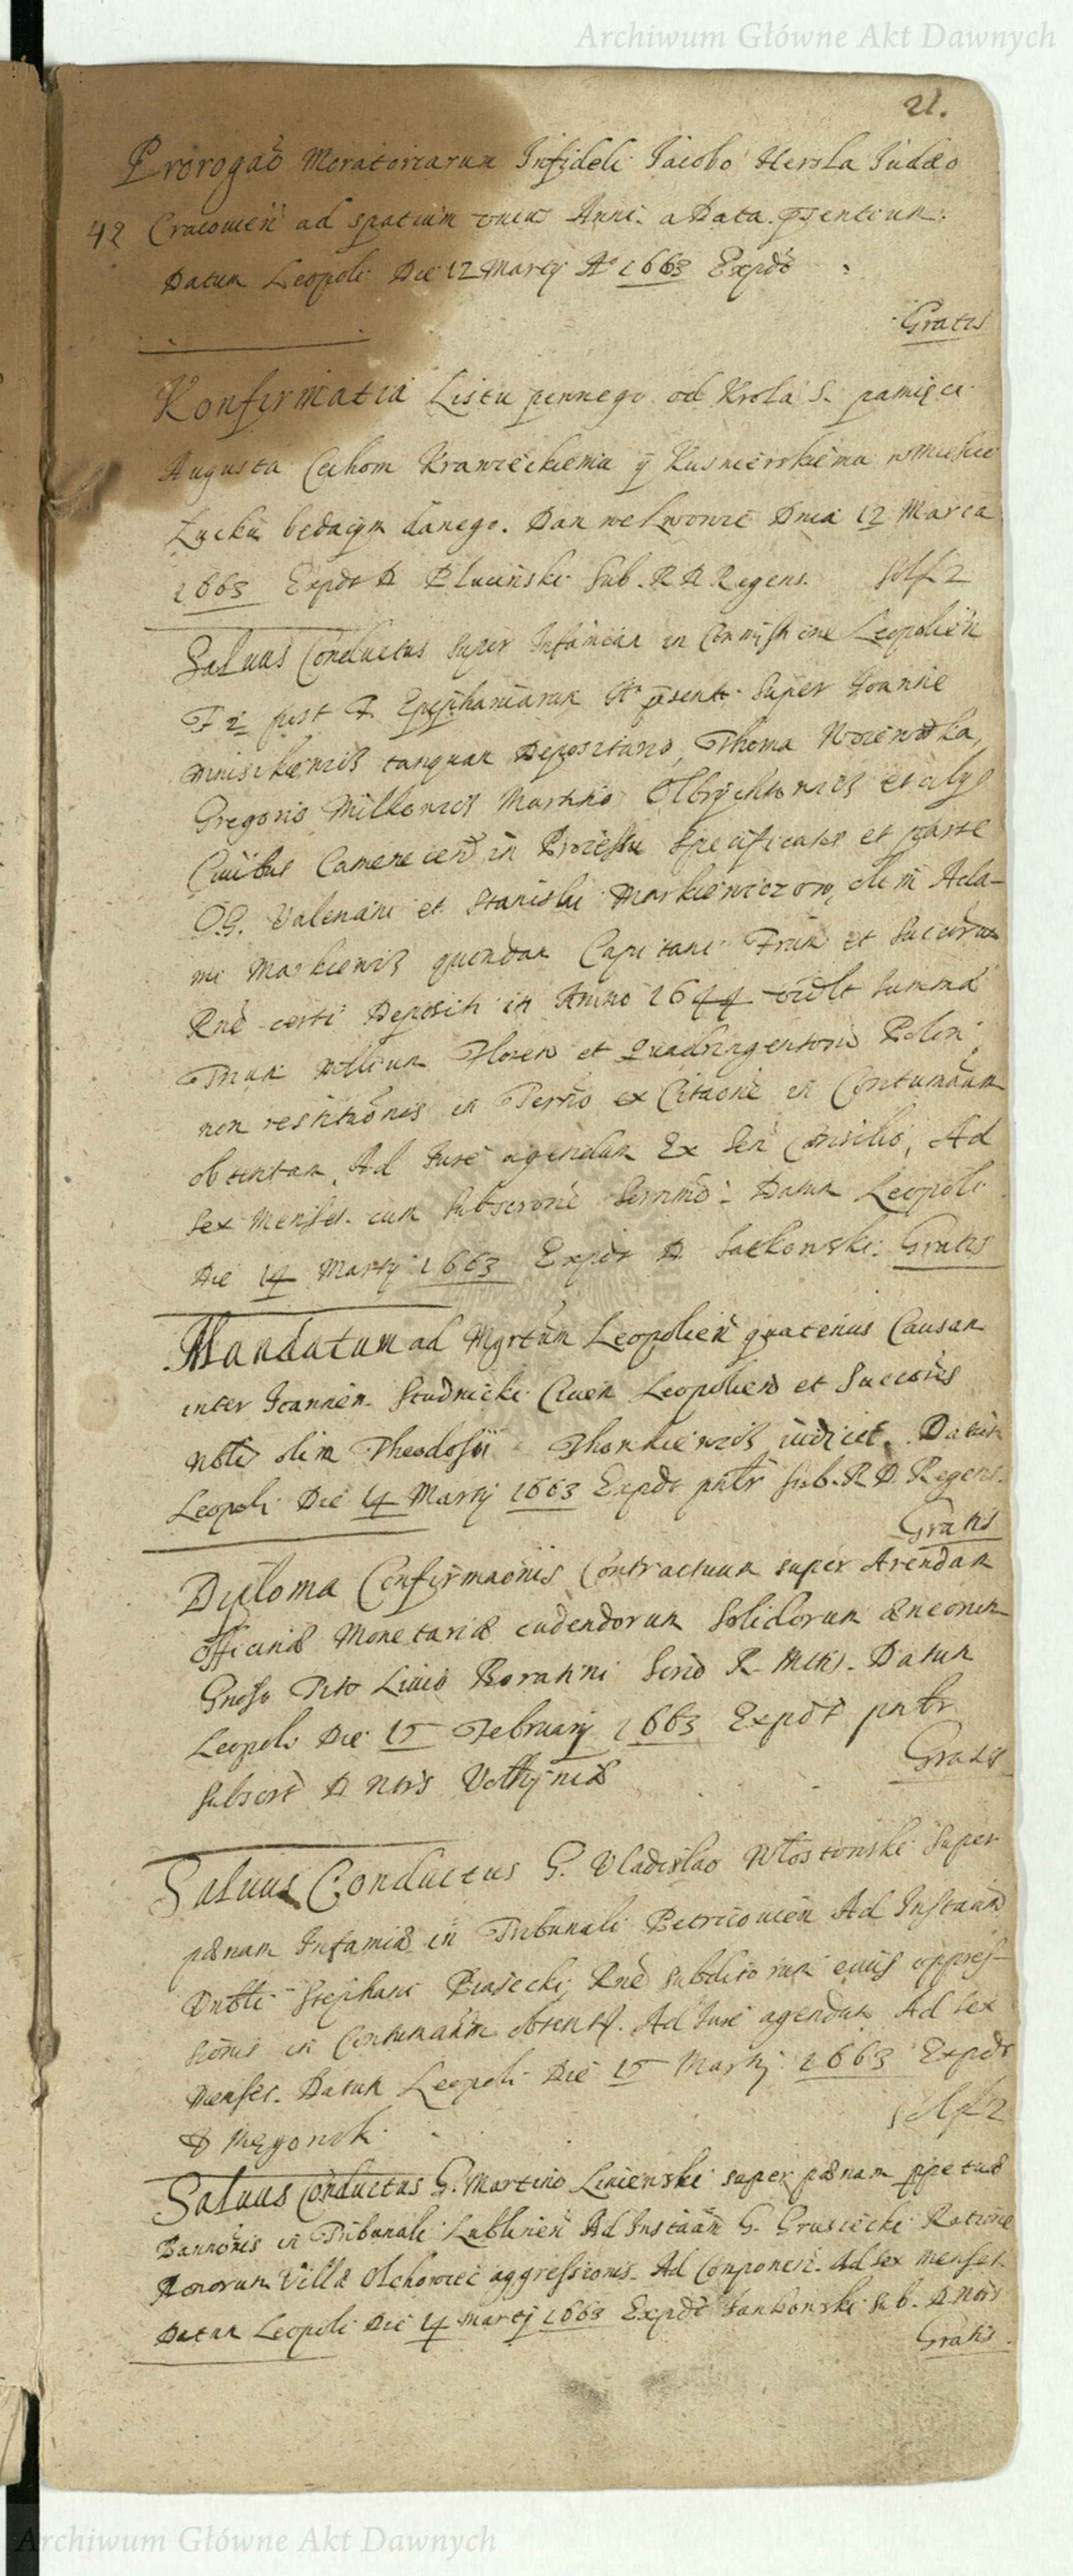 Archiwum Główne Akt Dawnych
21.
Prorogaõ Moratoriarum Infideli Iacobo Hersla Iudæo
42 Cracouień ad spatium unius Anni a Data pñtium.
Datum Leopoli Die 12 Martij Aº 1663 Expdt
Gratis
Konfirmatia Listu pennego od Krola S. pamięci
Augusta Cechom Krawieckiemu ÿ Kusnierskiemu w miescie
Łucku będaçym danego. Dan we Lwowie Dnia 12 Marca
1663 Expdt D Pluciński Sub. R D Regens.
Saluus Conductus super Infamiam in Cõmissione Leopolień
F 2 post F. Epiphaniarum Aº pñsenti super Joanne
tanquam Depositario, Thoma
Gregorio Milkowicz Martino Olbrychtowicz et alijs
Ciuibus Camenecen in Processu specificatis et parte
G.G. Valeriani et Stanislai Markiewiczow, olim Ada-
mi Markiewicz quondam Capitanei
Rnē certi Depositi in Anno 1644 vidlt summa
Trium Millium Floren et Quadringentorũ Polon
non restitutõnis in Termo ex Citaõne in Contumaciam
obtentam. Ad Iure agendum Ex Sen Consilio, Ad
sex menses. cum Subscrone Sermæ. Datum Leopoli
Die 14 Martij 1663 Expdt D Sackowski. Gratis
Mandatum ad Mgrtum Leopolień quatenus Causam
inter Ioannem Studnicki Ciuem Leopolien et Succores
nbtis olim Theodosii iudicet. Datum
Leopoli Die 14 Martij 1663 Expdt pntbr sub. R D. Regens.
Gratis
Diploma Confirmaõnis Contractuum super Arendam
officinæ Monetariæ cudendorum Solidorum æneorum
Gnoso Tito Liuio Boratini Serio R. Mttis. Datum
Leopoli Die 15 Februarij 1663 Expdt pntbr
subscrt D Noris Volhÿniæ
Gratis
Saluus Conductus G. Vladislao Włostowski super
pænam Infamiæ in Tribunali Petricouień Ad Instaãm
Vnbli Stephani Piasecki, Rnē subditorum eius oppres-
sionis in Contumaãm obtentæ. Ad Iure agendum Ad sex
menses. Datum Leopoli Die 15 Martij 1663 Expdt
Saluus Conductus G. Martino Liniewski super pænam ppetuæ
Bannõnis in Tribunali Lublinen Ad Instaãm G. Grusiecki Ratione
Bonorum Villæ Olchowiec aggressionis. Ad Componeñ. Ad sex menses.
Datum Leopoli Die 14 Martij 1663 Expdt Jankowski sub. D Noris
Gratis.
Archiwum Główne Akt Dawnych